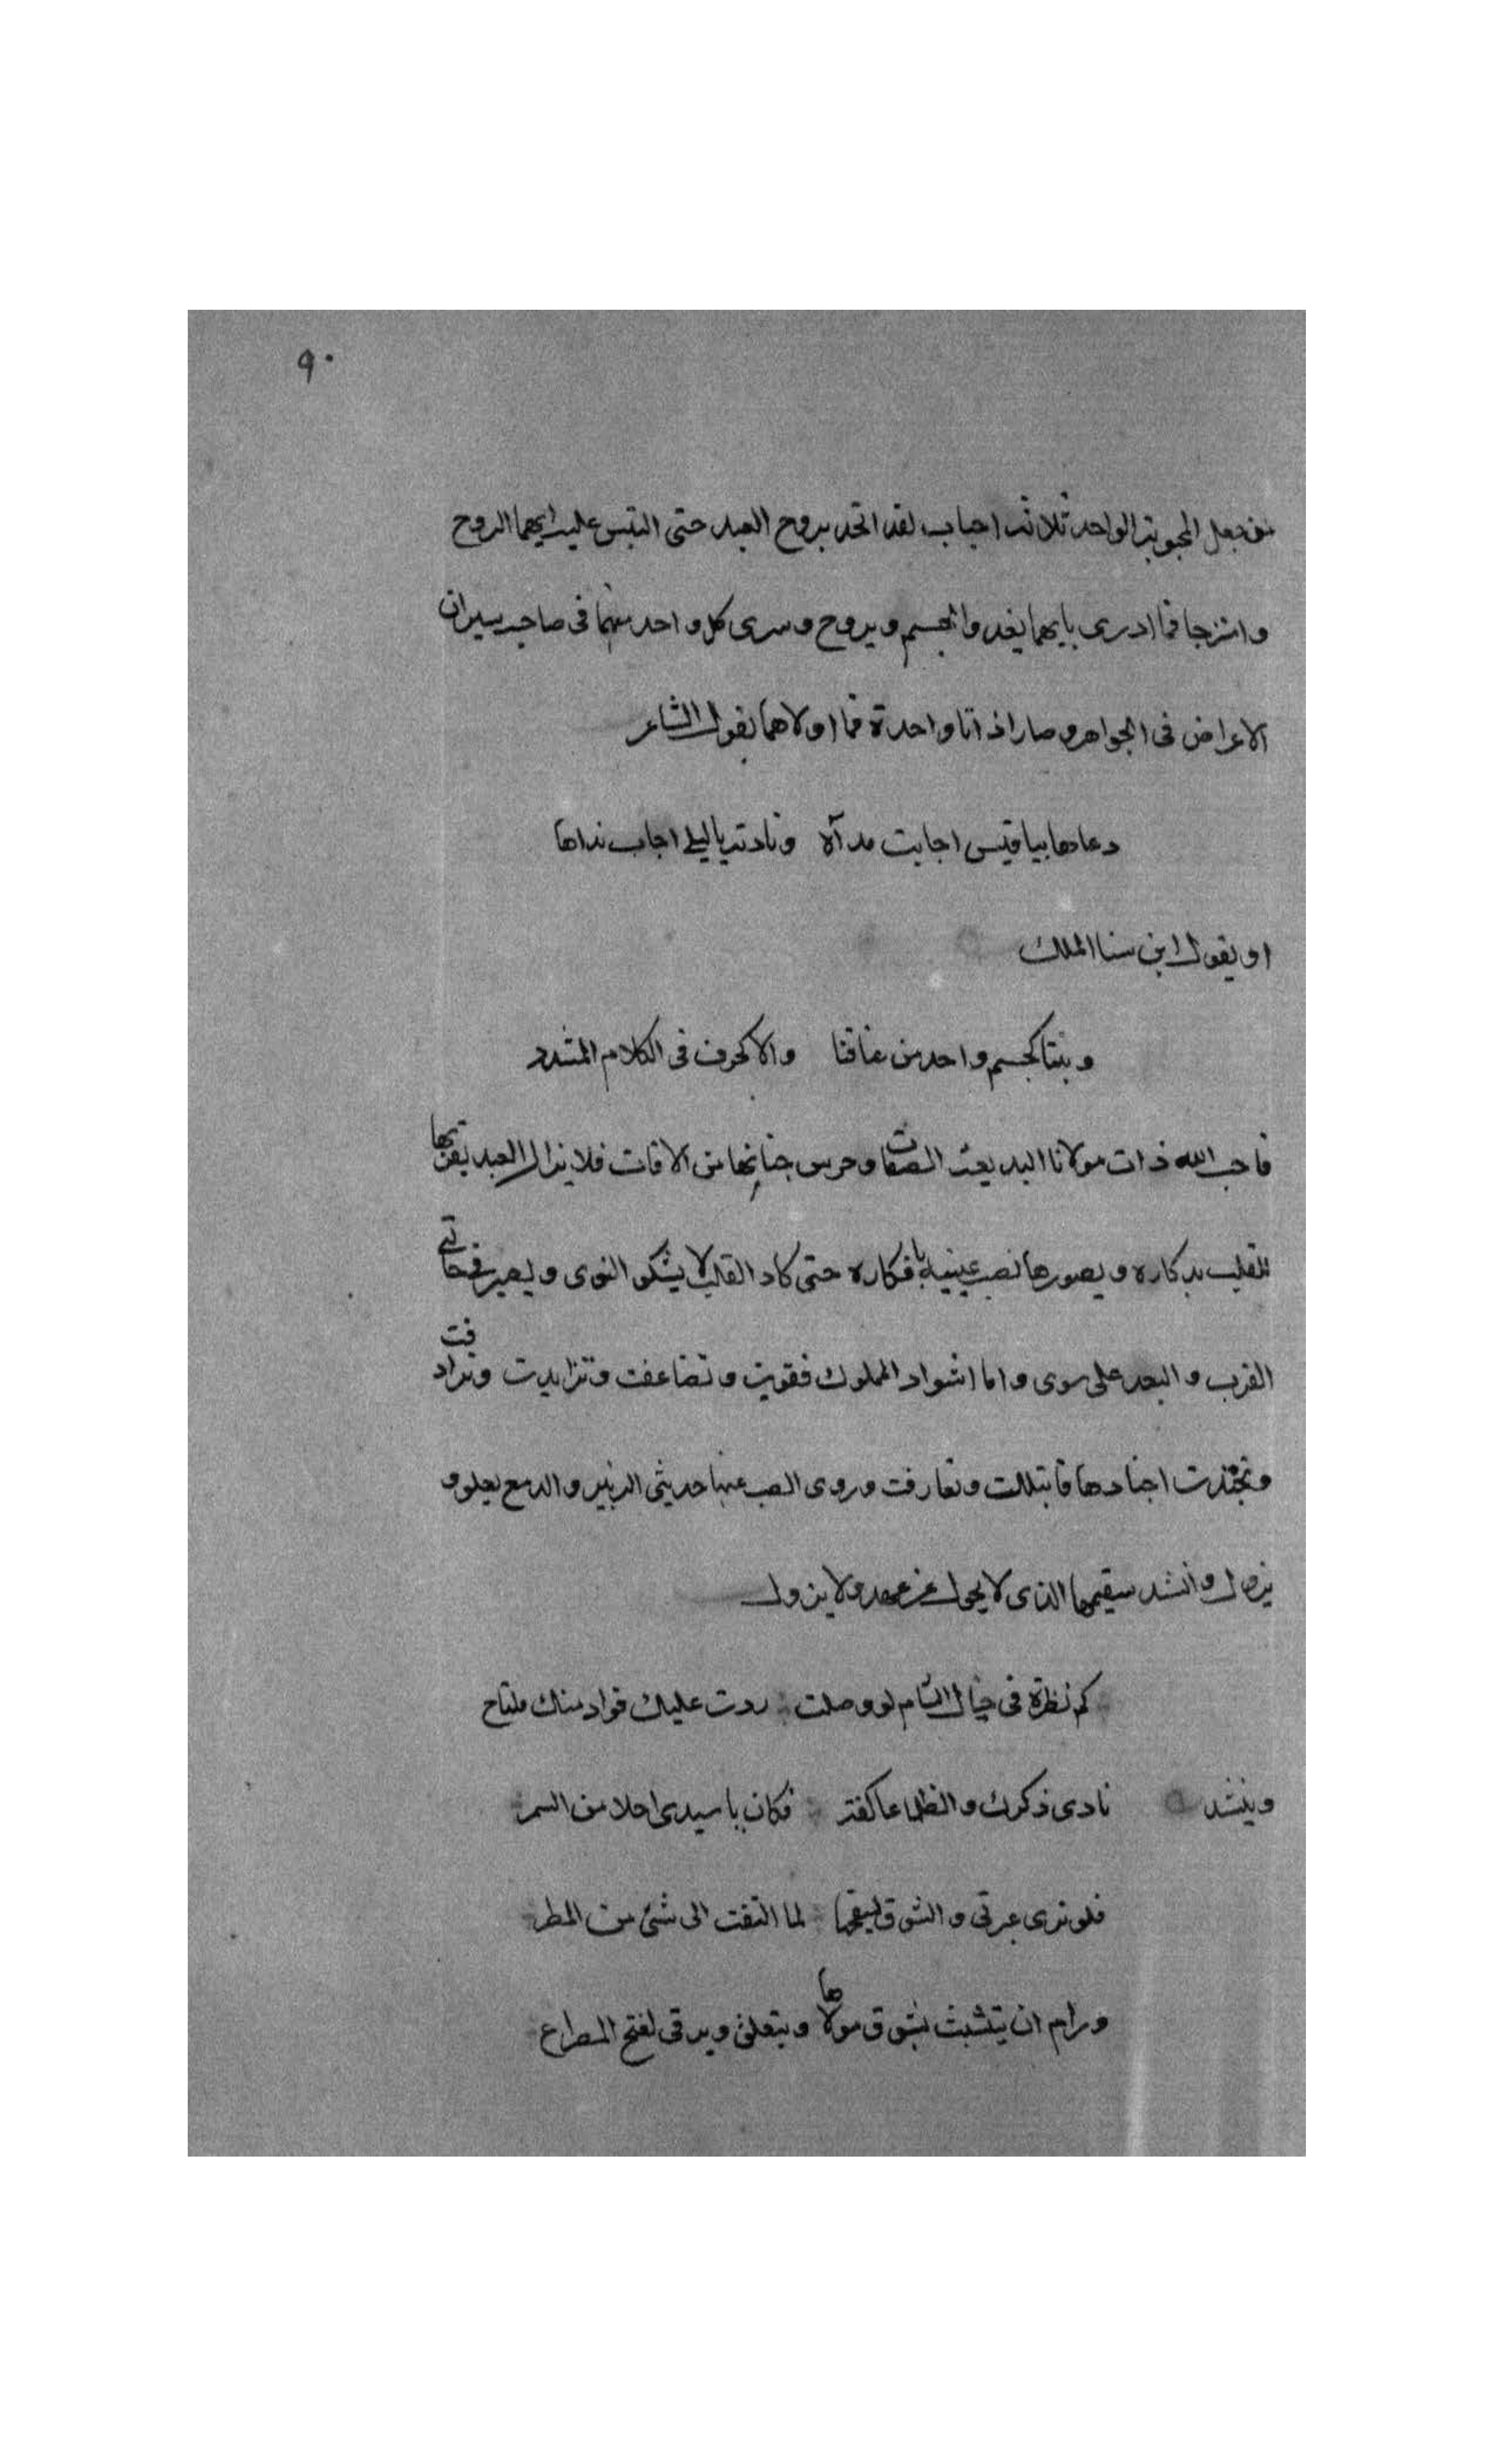 ٩٠
من جعل المحبوبة الواحد ثلاثة احباب لقد اتحد بروح العبد حتى التبس عليه ايهما الروح
وامتزجا فما ادرى بايهما يغدوا الجسم ويروح وسرى كل واحد منهما فى صاحبه سيران
الاعراض فى الجواهر وصارا ذاتا واحدة فما اولاهما بقول الشاعر
دعاها بيا قيس اجابت نداه ونادته يا ليلى اجاب نداها
او بقول ابن سنا الملك
وبتنا كجسم واحد من عناقنا والا كحرف فى الكلام المشدد
فاحب الله ذات مولانا البديعة الصفات وحرس جنابها من الافات فلا يزال العبد يقربها
للقلب بذكاره ويصورها نصب عينيه بافكاره حتى كاد القلب لا يشكو النوى ويصير فى حالتى
القرب والبعد على سوى واما اشواق المملوك فقويت وتضاعفت وتزايدت وترادفت
وتجندت اجنادها وتعارفت وروى الصب عنها حديثى الزفير والدمع يعلو و
ينزل وانشد سقيمها الذى لا يحول عن عهد ولا يزول
كم نظرة فى خيال الشام لو وصلت ردت عليك فواد منك ملتاح
وينشد نادى ذكرك والظلما عاكفة فكان يا سيدى احلا من السمر
فلو ترى عبرتى والشوق يسفحها لما التفت الى شئ من المطر
ورام ان يتشبث بشوق مولاها ويتعلق ويرقى لفتح المصراع